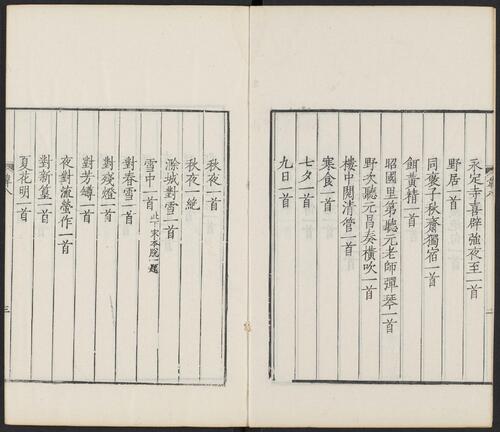 永定寺喜辟強夜至一首
野居一首
同褒子秋齋獨宿一首
餌黃精一首
昭國里第聽元老師彈琴一首
野次聽元昌奏橫吹一首
樓中閱清管一首
寒食一首
七夕一首
九日一首
秋夜一首
秋夜一絶
滁城對雪一首
雪中一首 此下宋本脫一題
對春雪一首
對殘燈一首
對芳罇一首
夜對流螢作一首
對新篁一首
夏花明一首
韋八
三